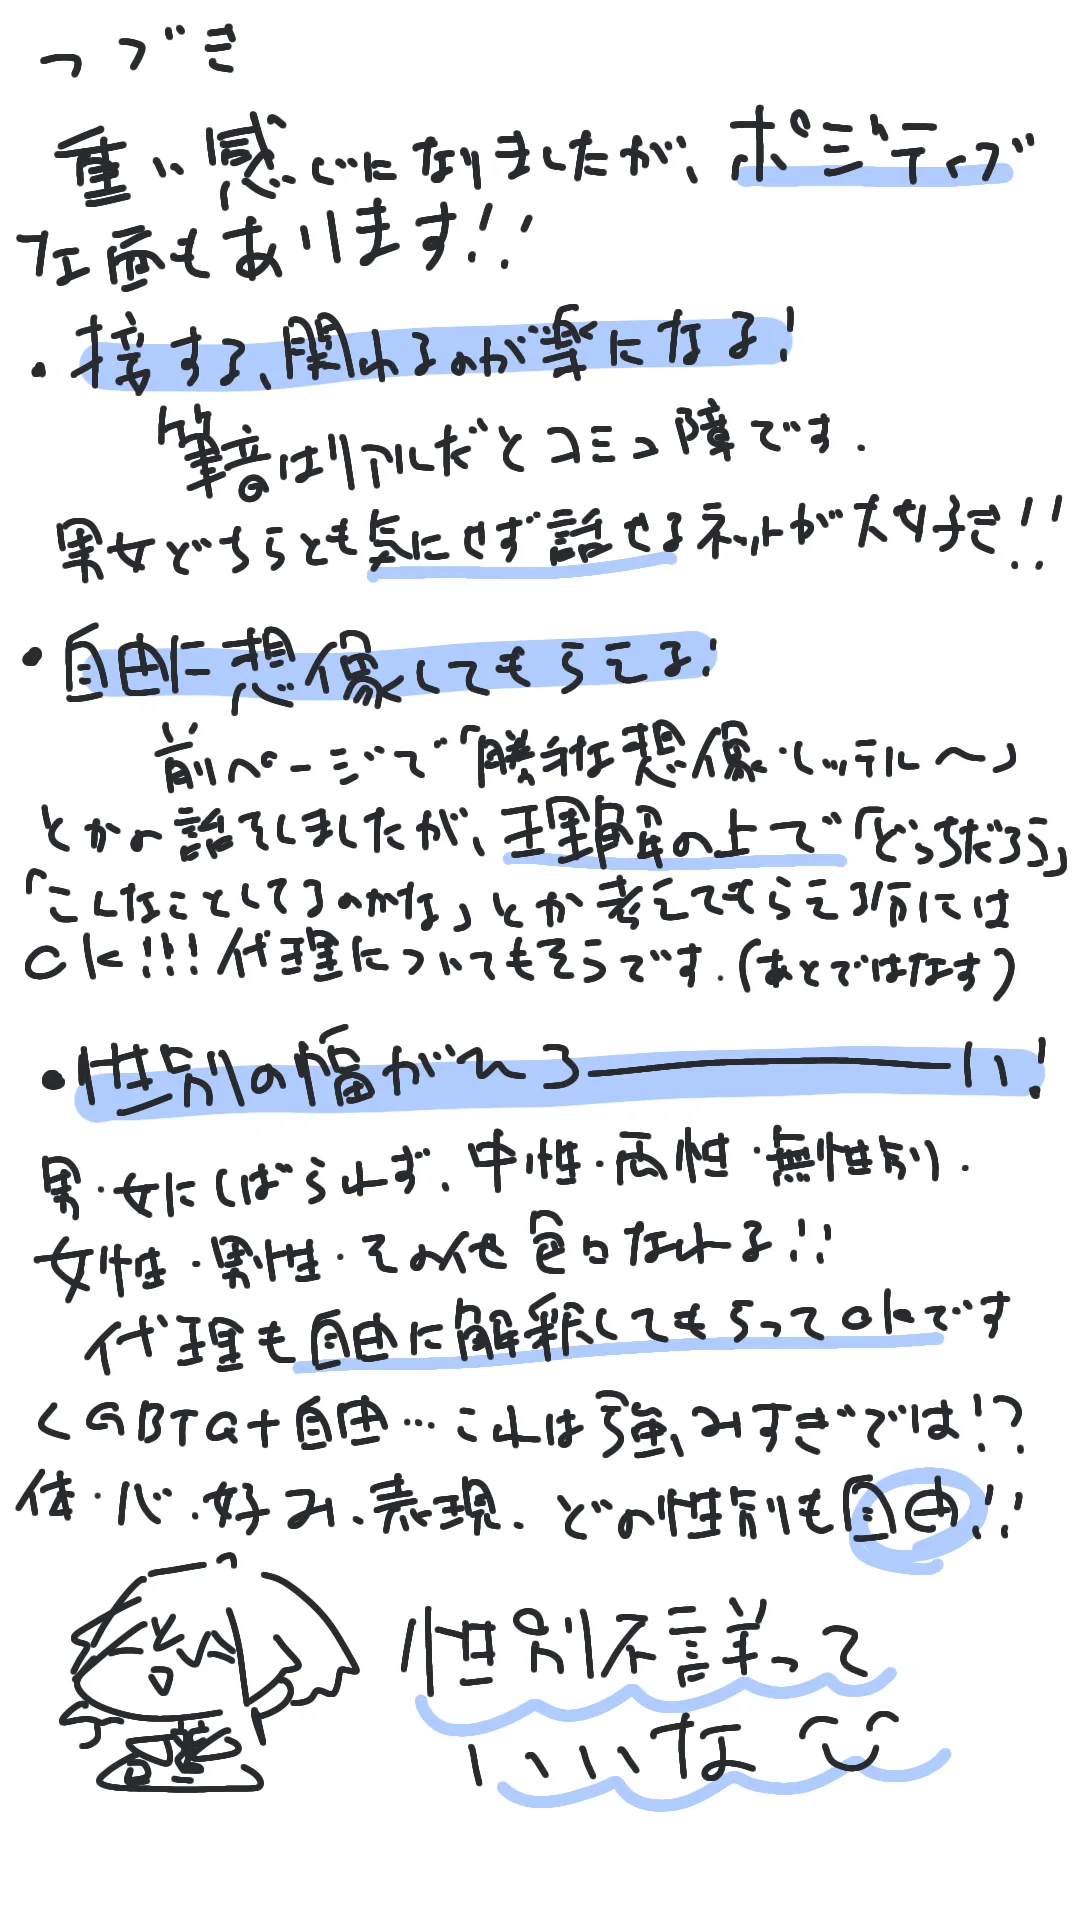 つづき
重い感じになりましたが、ポジティブ
な面もあります!!
・接する、関わるのが楽になる!
筆者はリアルだとコミュ障です.
男女どちらとも気にせず話せるネットが大好き!!
・自由に想像してもらえる!
前ページで「勝手な想像・レッテル〜」
とかの話をしましたが、理解の上で「どっちだろう」
「こんなことしてるのかな」とか考えてもらえる分には
OK!!!代理についてもそうです.(あとではなす)
・性別の幅がひろーーい!
男・女にしばられず、中性・両性・無性別.
女性・男性・その他色々なれる!!
代理も自由に解釈してもらってOKです
LGBTQ+自由…これは強みすぎでは!?
体・心・好み、表現、どの性別も自由!!
性別不詳って
いいな